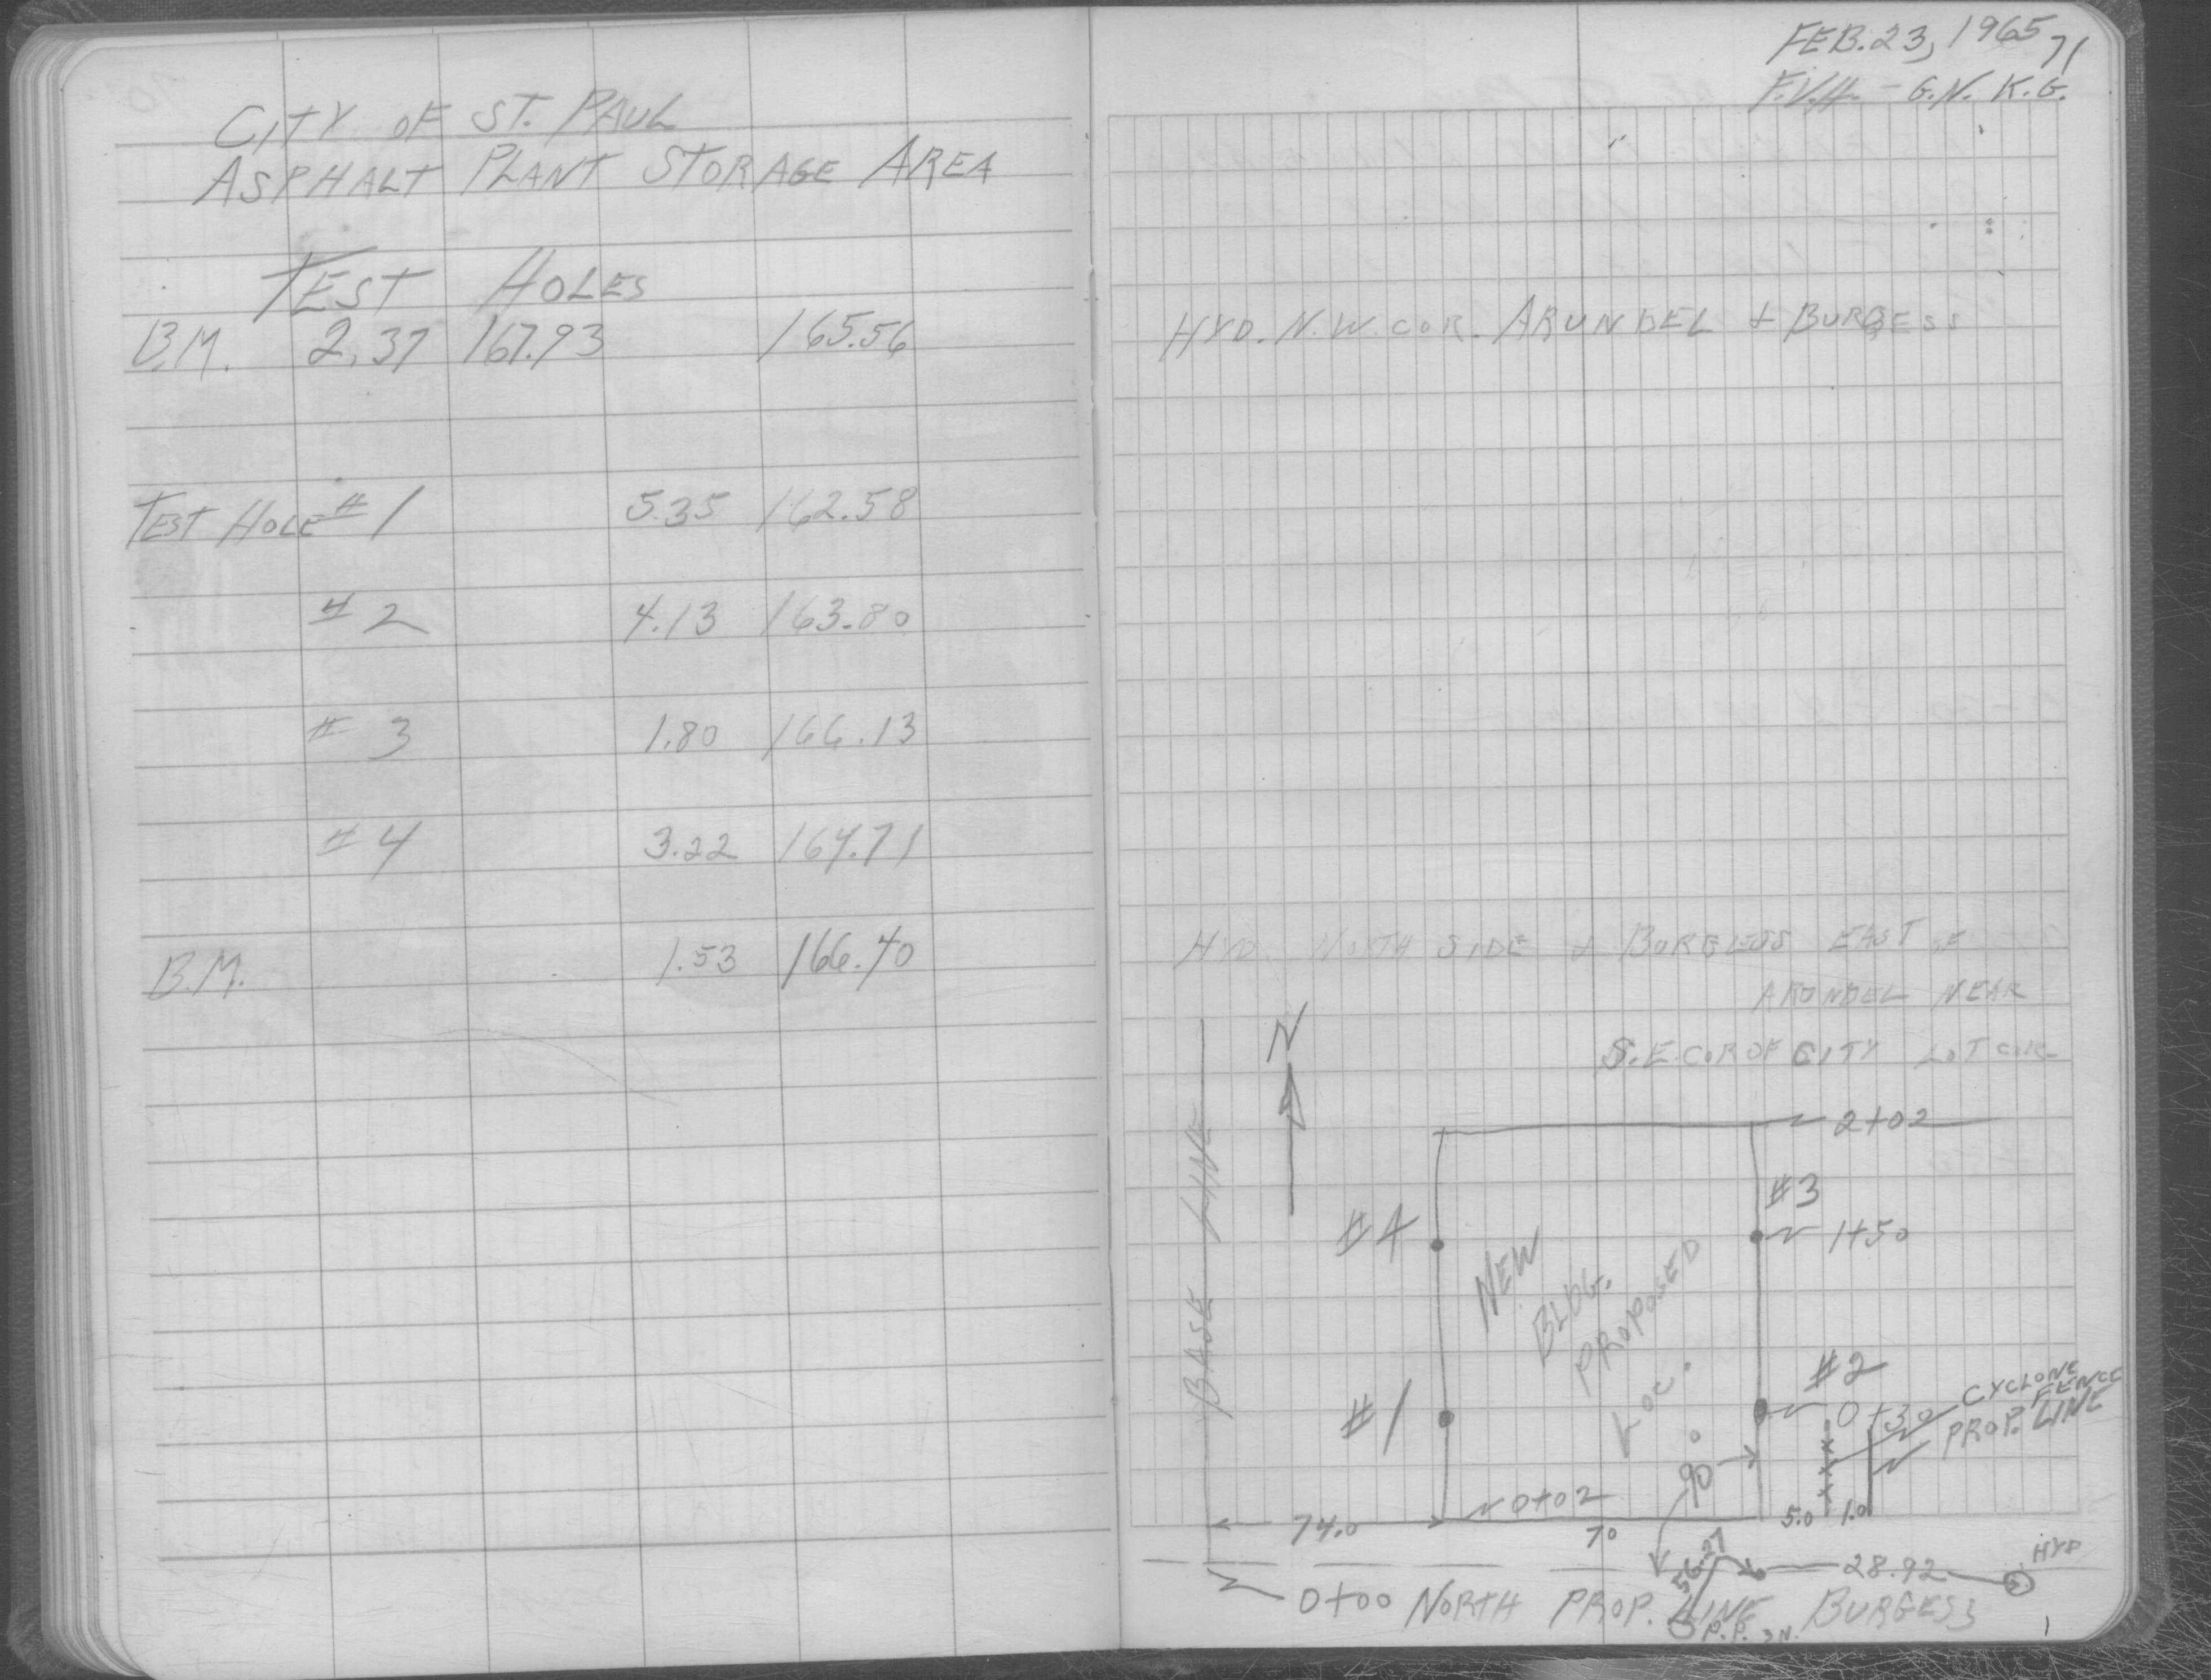 CITY OF ST. PAUL
ASPHALT PLANT STORAGE AREA
TEST HOLES
B.M. 2.37 167.93 165.56
TEST HOLE #1 5.35 162.58
#2 4.13 163.80
#3 1.80 166.13
#4 3.22 164.71
B.M. 1.53 166.40
FEB. 23, 1965 71
F.V.H. - G.N. K.G.
HYD. N.W. COR. ARUNDEL + BURGESS
HYD. NORTH SIDE BURGESS EAST OF
ARUNDEL NEAR
S.E. COR OF CITY LOT COR
N
BASE LINE
2+02
#3
#4
1+50
NEW
BLDG.
PROPOSED
LOC.
#2
#1
0+30
CYCLONE
FENCE
PROP. LINE
90°
0+02
74.0
70
5.0 1.0
56.27
28.92
HYD
0+00 NORTH PROP. LINE BURGESS
P.P.